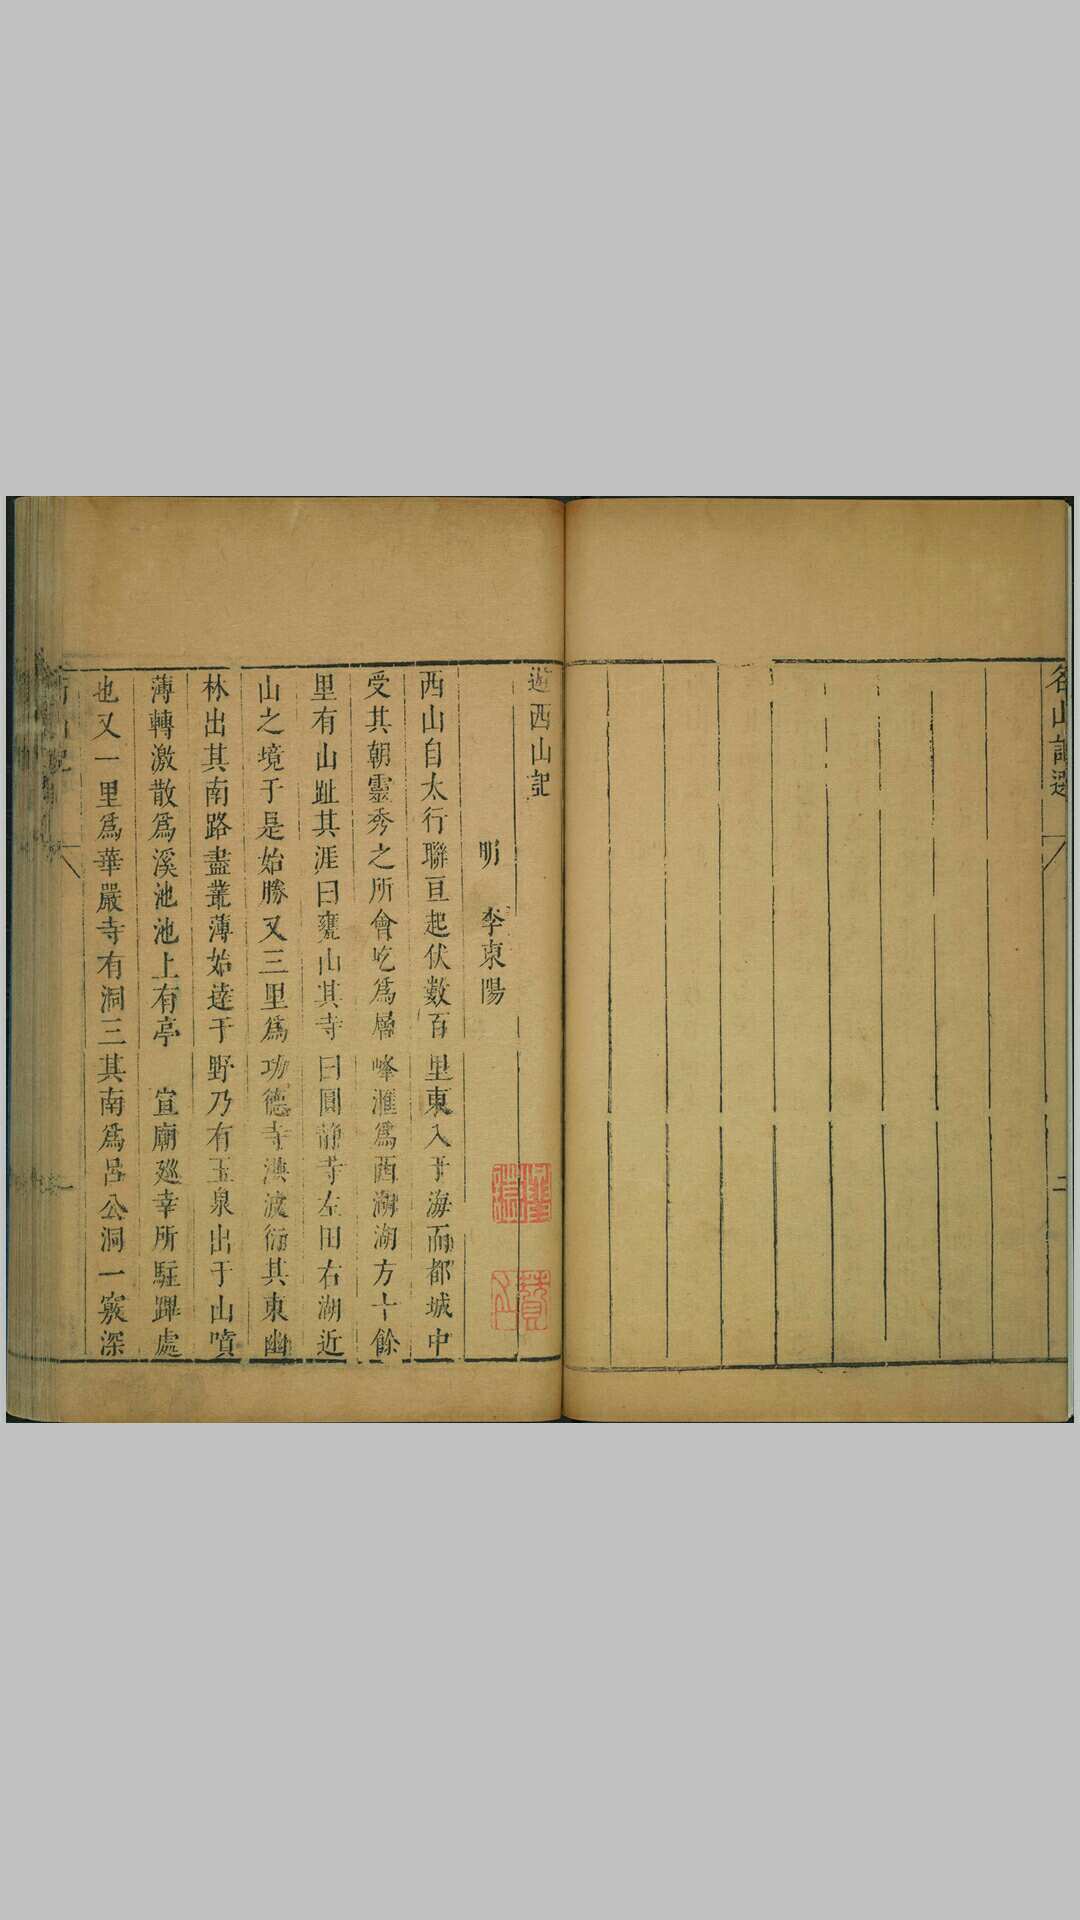 名山記選
二
遊西山記
明 李東陽
西山自太行聯亘起伏數百里東入于海而都城中
受其朝靈秀之所會屹爲層峰滙爲西湖湖方十餘
里有山趾其涯曰甕山其寺曰圓靜寺左田右湖近
山之境于是始勝又三里爲功德寺洪波衍其東幽
林出其南路盡叢薄始達于野乃有玉泉出于山噴
薄轉激散爲溪池池上有亭 宣廟廵幸所駐蹕處
也又一里爲華嚴寺有洞三其南爲呂公洞一竅深